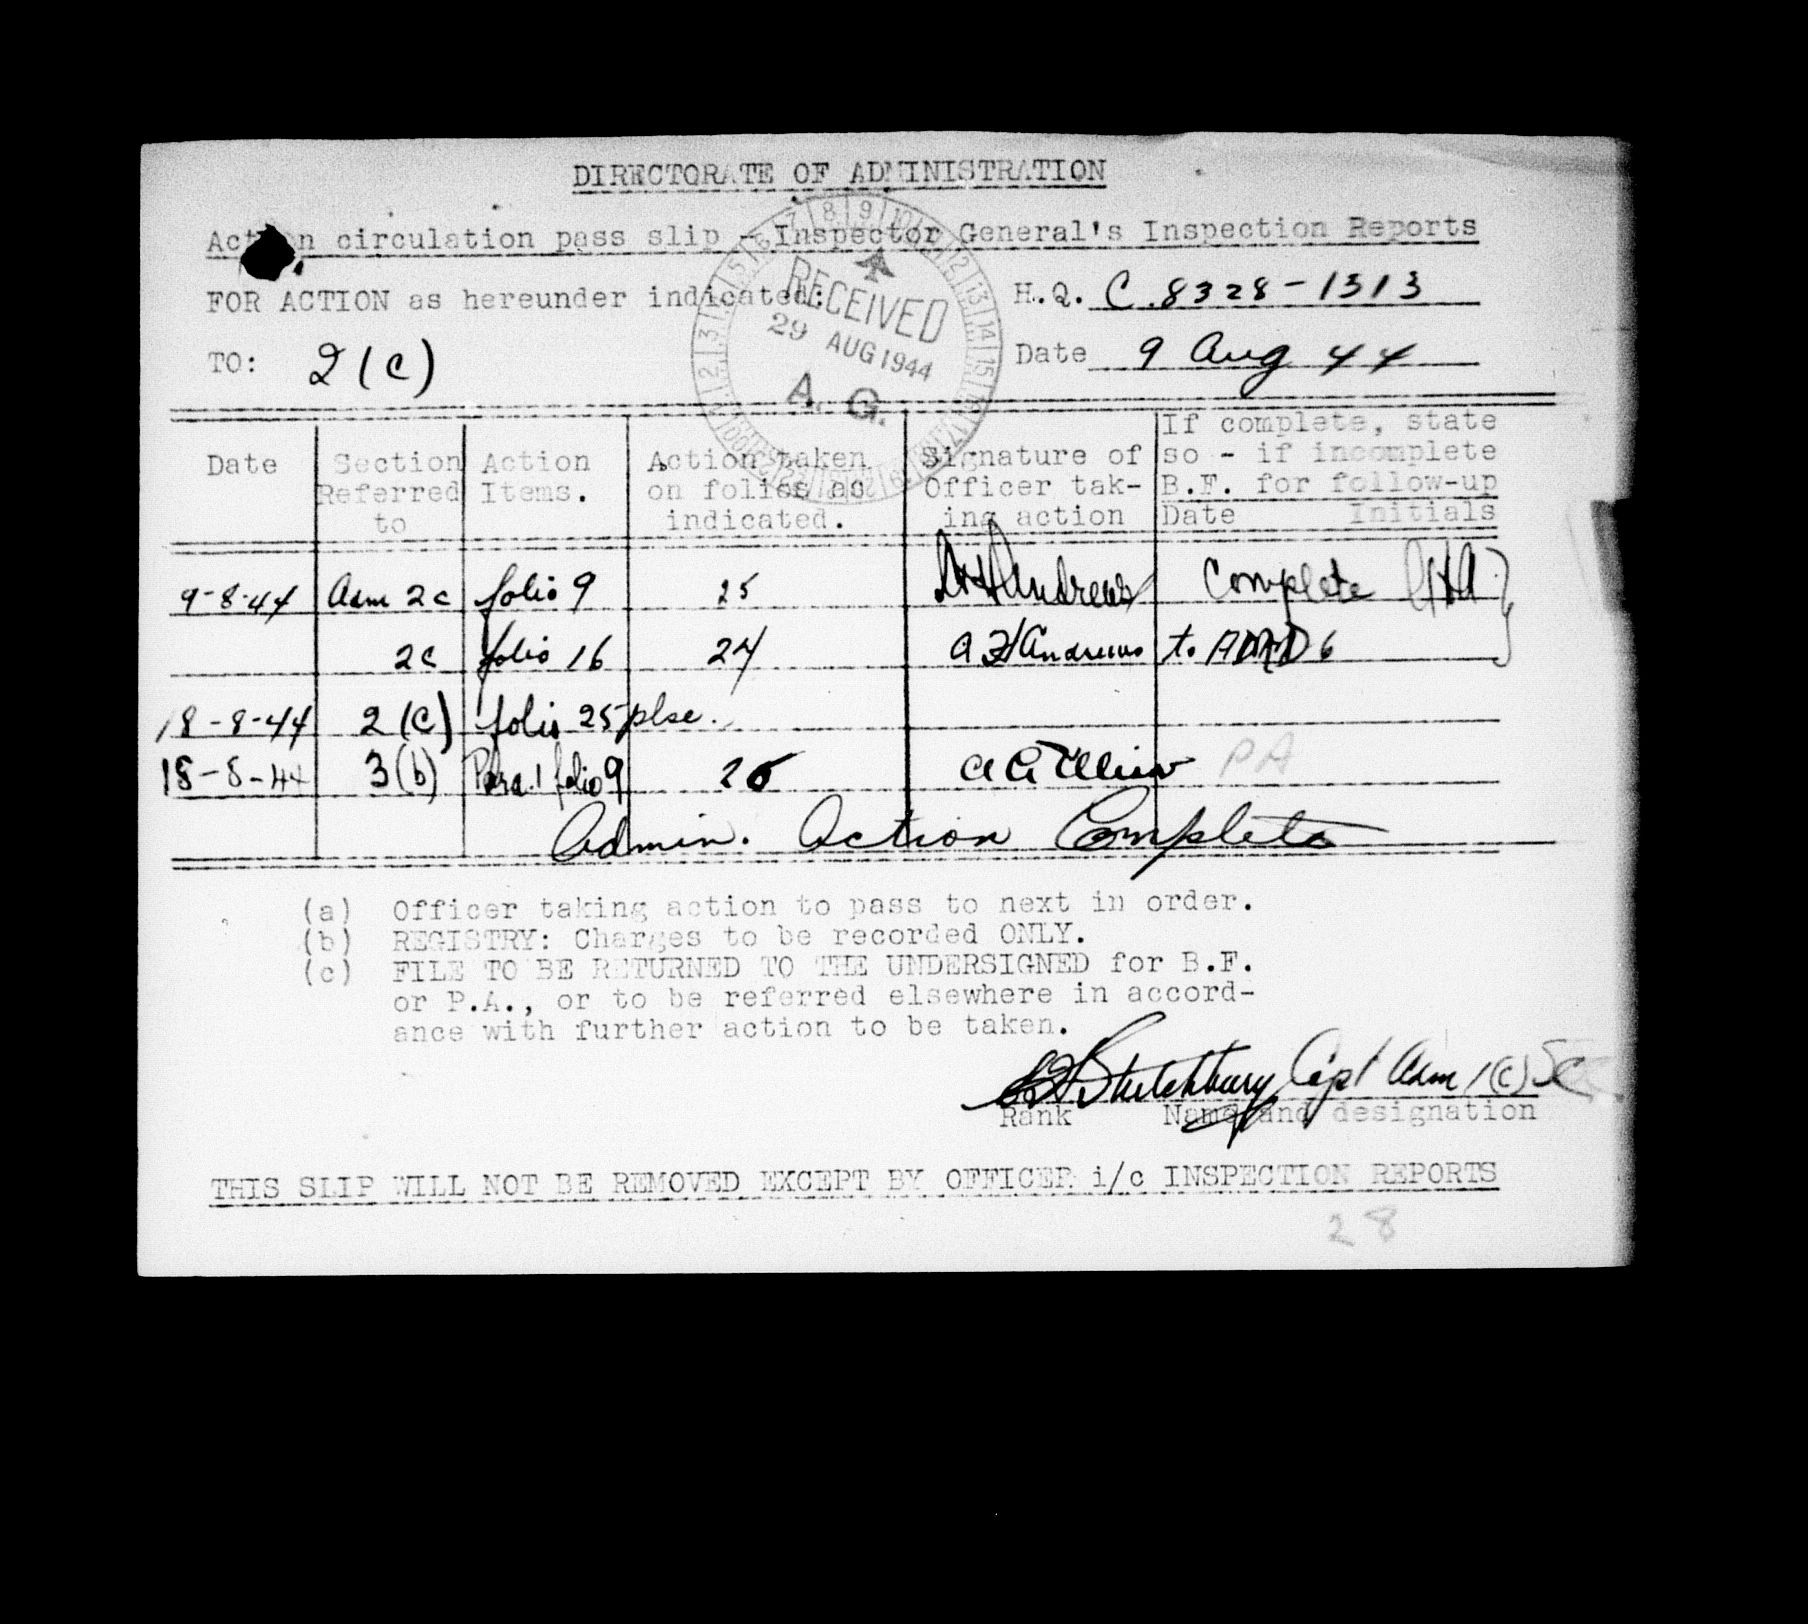 DIRECTORATE OF ADMINISTRATION
Action circulation pass slip - Inspector General's Inspection Reports
FOR ACTION as hereunder indicated:
H.Q. C.8328-1313
TO: 2(c)
Date 9 Aug 44
RECEIVED
29 AUG 1944
A. G.
Date
Section Referred to
Action Items.
Action taken on folios as indicated.
Signature of Officer tak-ing action
If complete, state so - if incomplete B.F. for follow-up
Date Initials
9-8-44 Adm 2c folio 9 25 Andrews Complete
2c folio 16 24 Andrews to
18-8-44 2(c) folio 25 plse.
18-8-44 3(b) Para.1 folio 9 26 PA
Admin. Action Complete
(a) Officer taking action to pass to next in order.
(b) REGISTRY: Charges to be recorded ONLY.
(c) FILE TO BE RETURNED TO THE UNDERSIGNED for B.F.
or P.A., or to be referred elsewhere in accord-
ance with further action to be taken.
Stutchbury Capt Adm 1(c)
Rank Name and designation
THIS SLIP WILL NOT BE REMOVED EXCEPT BY OFFICER i/c INSPECTION REPORTS
28